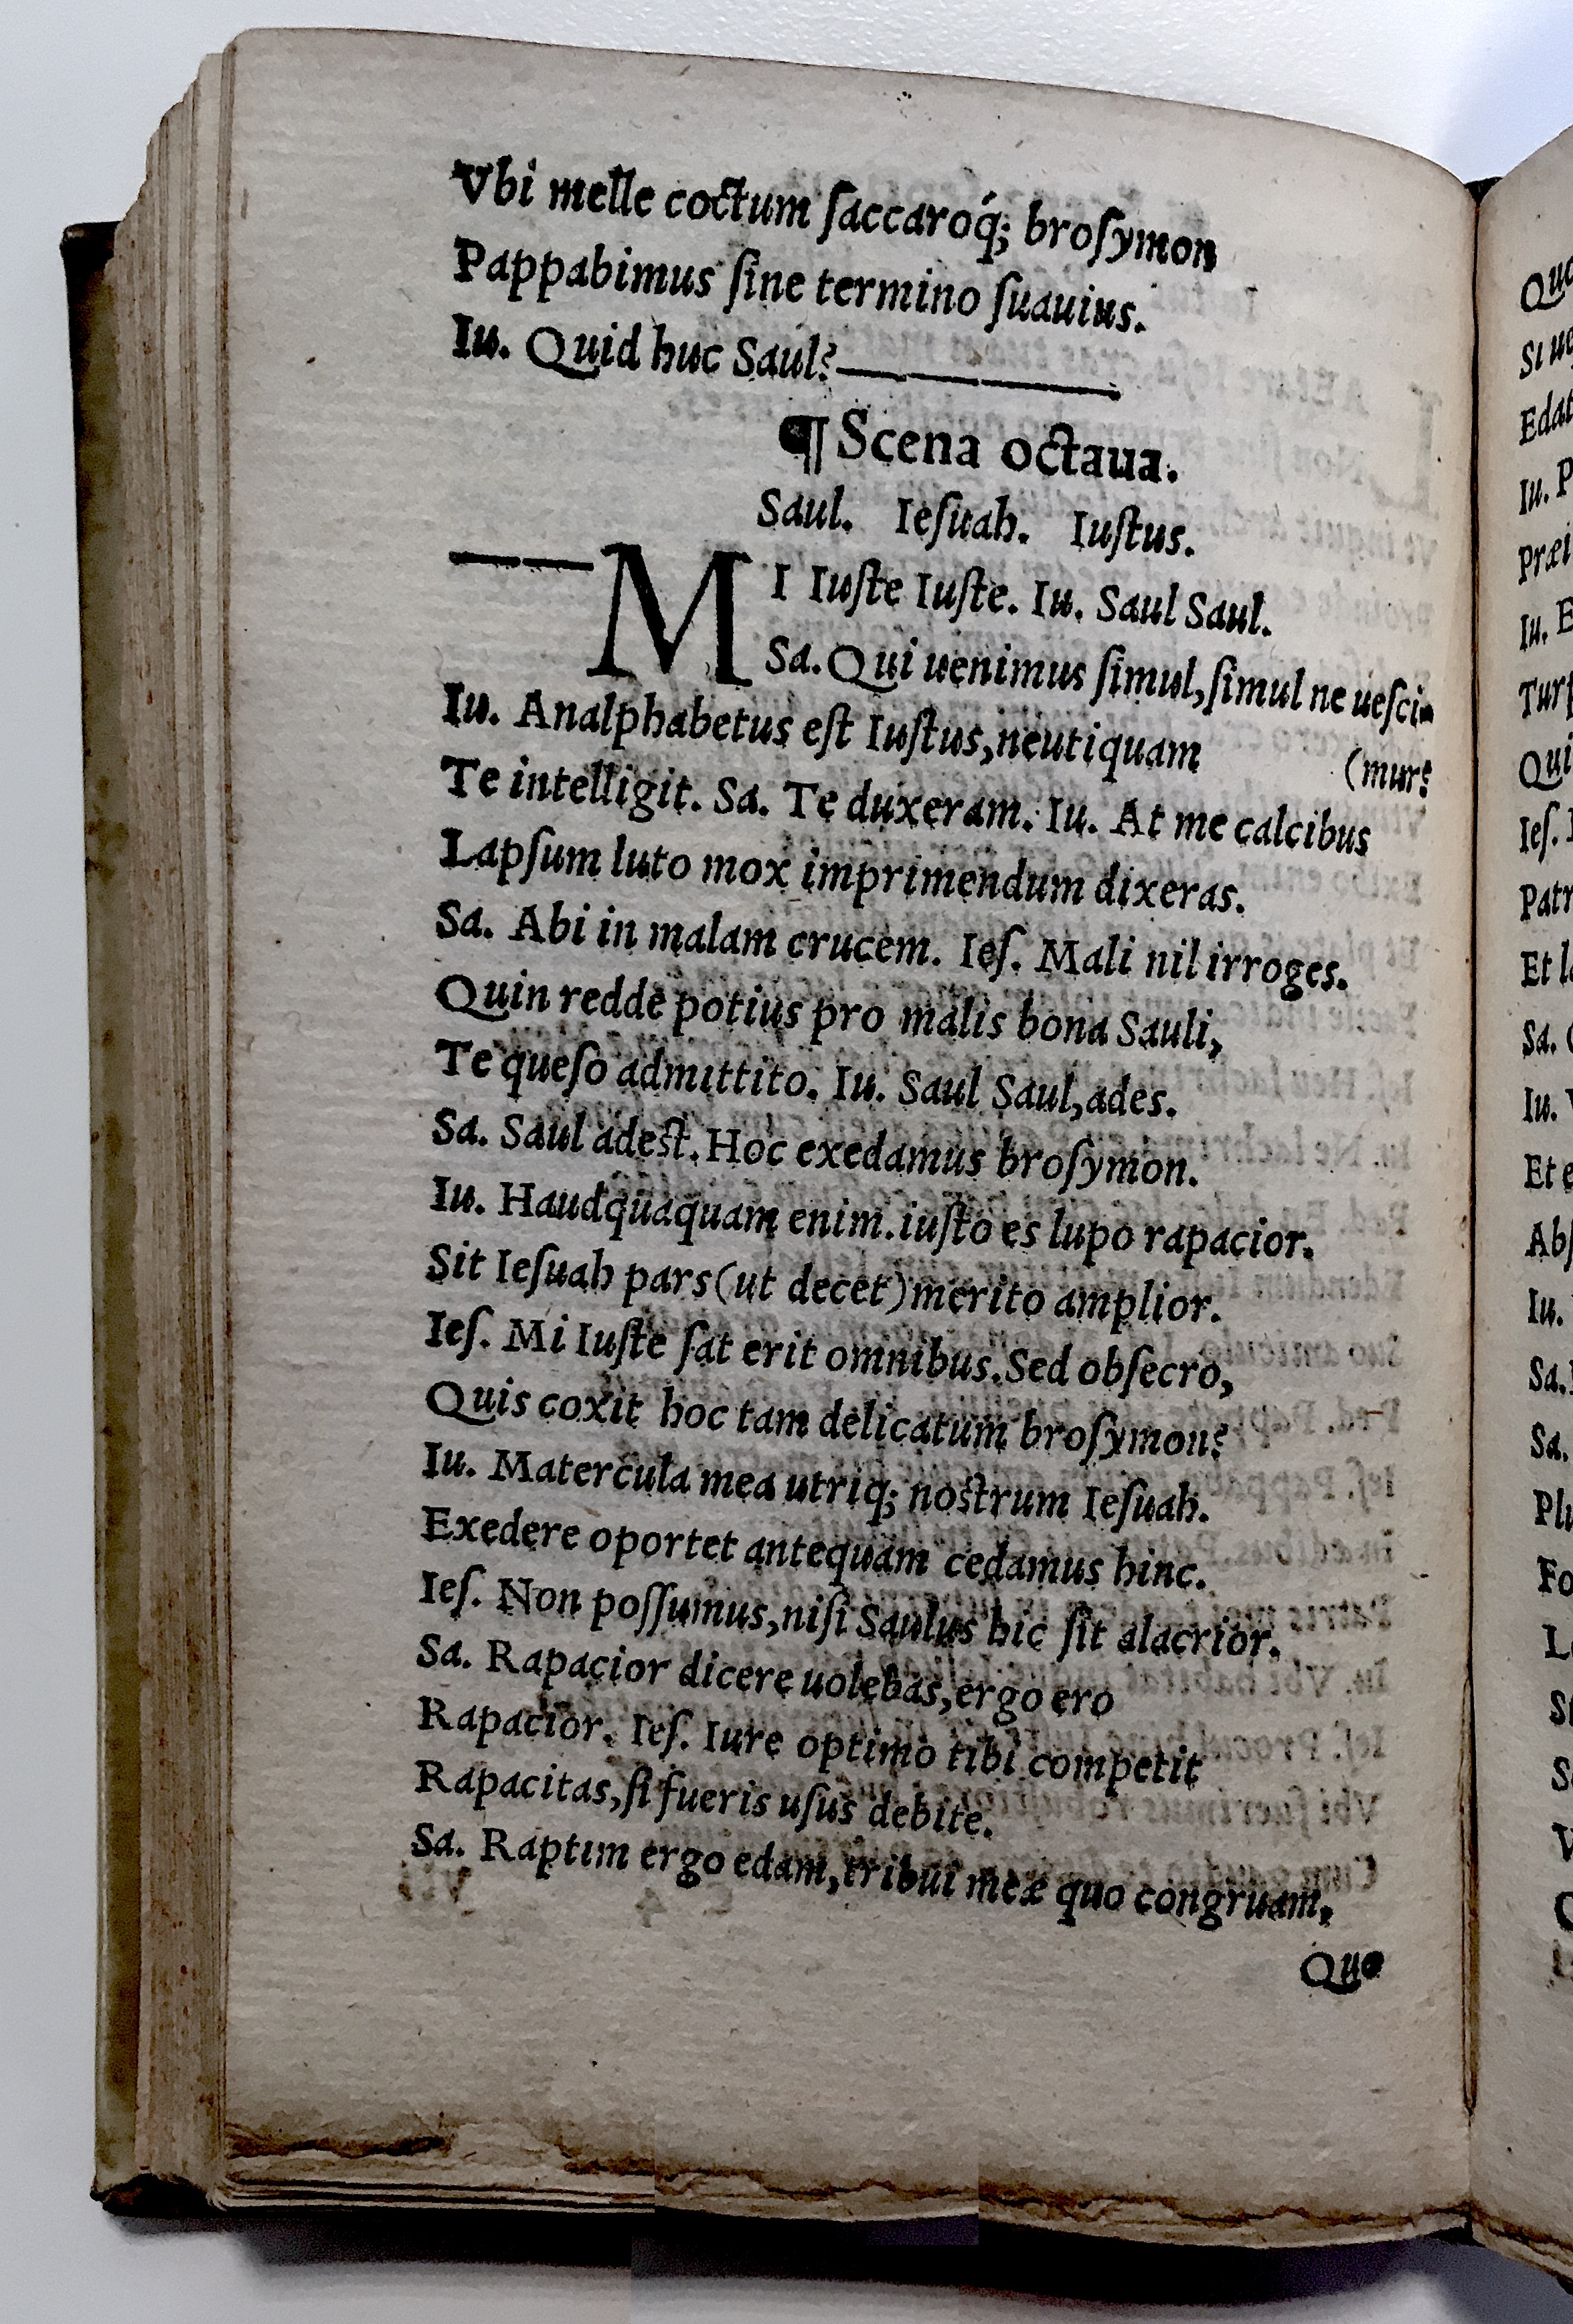 Vbi melle coctum ſaccaroq́; broſymon
Pappabimus ſine termino ſuauius.
Iu. Quid huc Saul?
¶ Scena octaua.
Saul. Ieſuah. Iuſtus.
MI Iuſte Iuſte. Iu. Saul Saul.
Sa. Qui uenimus ſimul, ſimul ne ueſci-
(mur?
Iu. Analphabetus eſt Iuſtus, neutiquam
Te intelligit. Sa. Te duxeram. Iu. At me calcibus
Lapſum luto mox imprimendum dixeras.
Sa. Abi in malam crucem. Ieſ. Mali nil irroges.
Quin redde potius pro malis bona Sauli,
Te queſo admittito. Iu. Saul Saul, ades.
Sa. Saul adest. Hoc exedamus broſymon.
Iu. Haudquaquam enim. iuſto es lupo rapacior.
Sit Ieſuah pars (ut decet) merito amplior.
Ieſ. Mi Iuſte ſat erit omnibus. Sed obſecro,
Quis coxit hoc tam delicatum broſymon?
Iu. Matercula mea utriq; nostrum Ieſuah.
Exedere oportet antequam cedamus hinc.
Ieſ. Non poſſumus, niſi Saulus hic ſit alacrior.
Sa. Rapacior dicere uolebas, ergo ero
Rapacior. Ieſ. Iure optimo tibi competit
Rapacitas, ſi fueris uſus debite.
Sa. Raptim ergo edam, tribui meæ quo congruam,
Quo